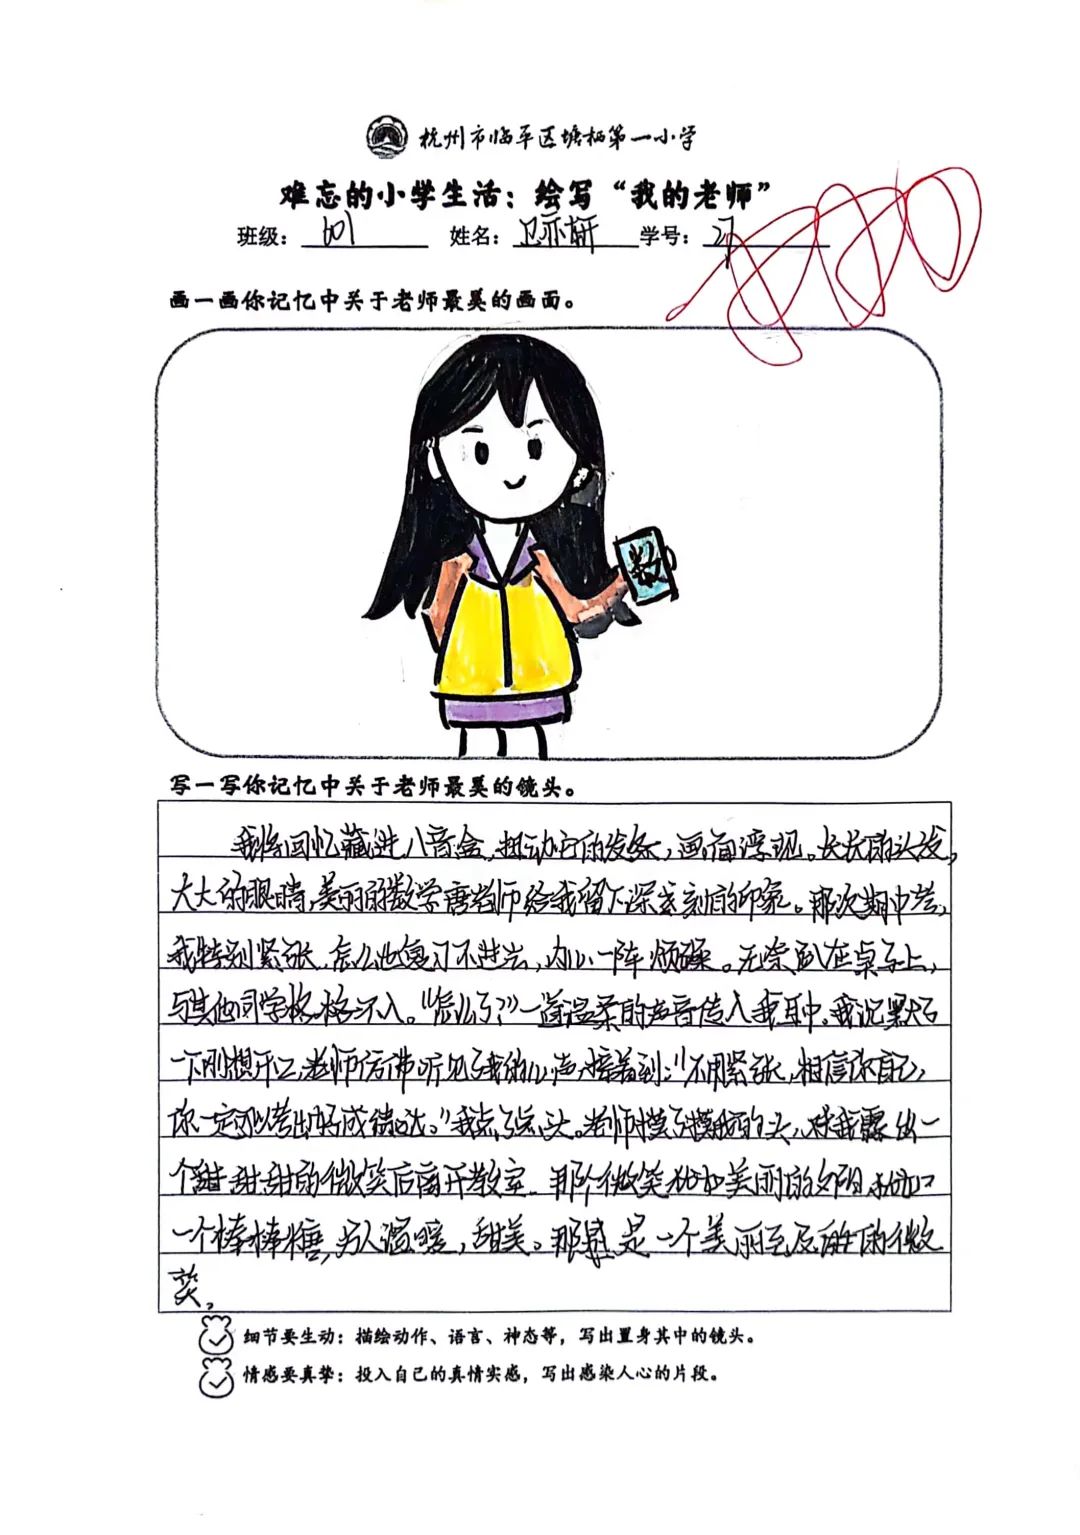 杭州市临平区塘栖第一小学
难忘的小学生活：绘写“我的老师”
班级：601 姓名：卫亦妍 学号：27
画一画你记忆中关于老师最美的画面。
数
写一写你记忆中关于老师最美的镜头。
我将回忆藏进八音盒，扭动它的发条，画面浮现。长长的头发，
大大的眼睛，美丽的数学唐老师给我留下深刻的印象。那次期中考，
我特别紧张，怎么也复习不进去，内心一阵烦躁。无奈趴在桌子上，
与其他同学格格不入。“怎么了？”一道温柔的声音传入我耳中。我沉默了
一下刚想开口，老师仿佛听见了我的心声，接着到：“不用紧张，相信你自己，
你一定可以考出好成绩哒。”我点了点头。老师摸了摸我的头，对我露出一
个甜甜的微笑后离开教室。那个微笑犹如美丽的夕阳，犹如
一个棒棒糖，为人温暖，甜美。那是一个美丽至及的微
笑。
细节要生动：描绘动作、语言、神态等，写出置身其中的镜头。
情感要真挚：投入自己的真情实感，写出感染人心的片段。